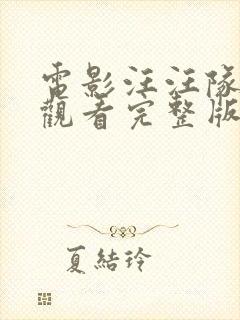 電影汪汪隊
觀看完整版
夏結玲